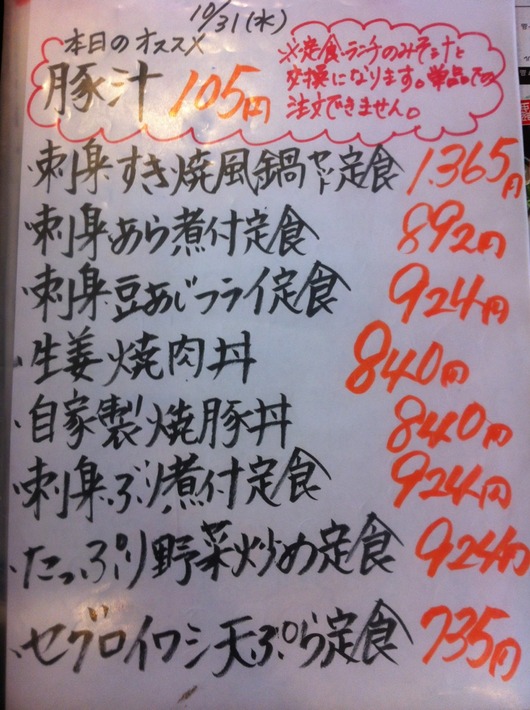 10/31(水)
本日のオススメ
豚汁 105円
※定食・ランチのみそ汁と
交換になります。単品での
注文できません。
・刺身すき焼風鍋セット定食 1365円
・刺身あら煮付定食 892円
・刺身豆あじフライ定食 924円
・生姜焼肉丼 840円
・自家製焼豚丼 840円
・刺身ぶり煮付定食 924円
・たっぷり野菜炒め定食 924円
・セグロイワシ天ぷら定食 735円